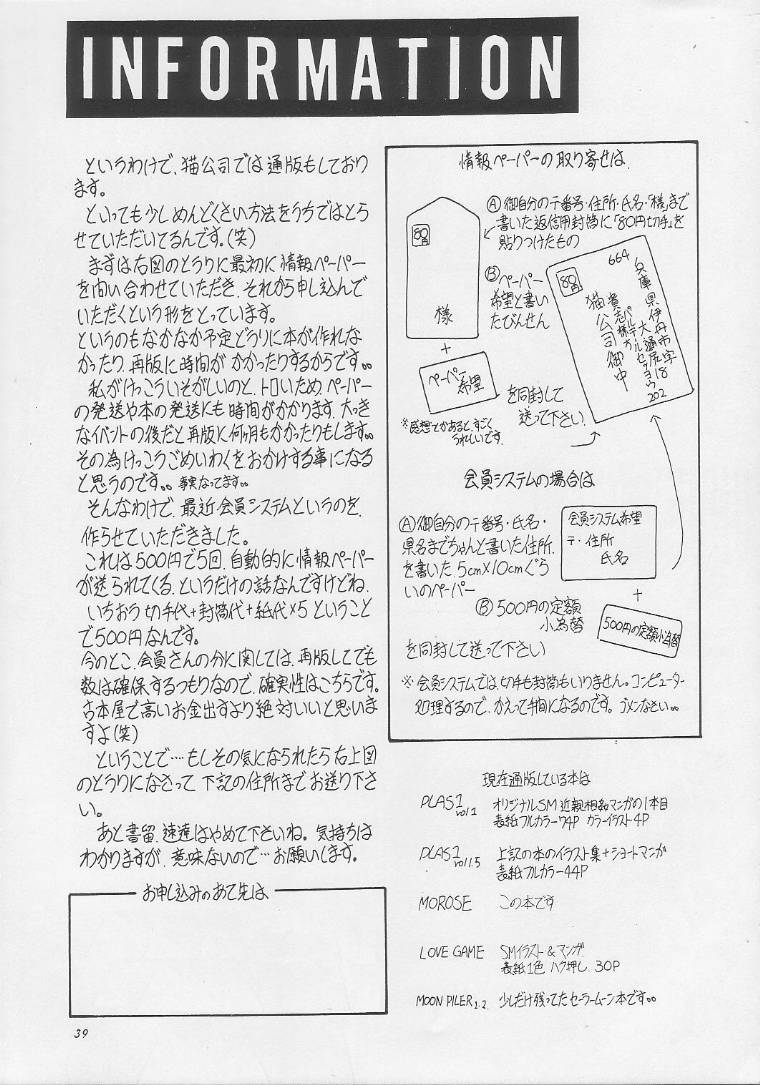 INFORMATION
というわけで、猫公司では通版もしており
ます。
といっても少しめんどくさい方法をうちではとら
せていただいてるんです。(笑)
まずは右図のとうりに最初に情報ペーパー
を問い合わせていただき、それから申し込んで
いただくという形をとっています。
というのもなかなか予定どうりに本が作れな
かったり、再版に時間がかかったりするからです。。
私がけっこういそがしいのと、トロいため、ペーパー
の発送や本の発送にも時間がかかります。大っき
なイベントの後だと再版に何ヶ月もかかったりもします。。
その為けっこうごめいわくをおかけする事になる
と思うのです。。事実なってます。。
そんなわけで、最近会員システムというのを、
作らせていただきました。
これは500円で5回、自動的に情報ペーパー
が送られてくる、というだけの話なんですけどね、
いちおう切手代+封筒代+紙代×5ということ
で500円なんです。
今のとこ、会員さんの分に関しては、再版してでも
数は確保するつもりなので、確実性はこちらです。
古本屋で高いお金出すより絶対いいと思いま
すよ(笑)
ということで‥‥もしその気になられたら右上図
のとうりになさって下記の住所までお送り下さ
い。
あと書留、速達はやめて下さいね。気持ちは
わかりますが、意味ないので…お願いします。
お申し込みのあて先は
39
情報ペーパーの取り寄せは
Ⓐ御自分の〒番号・住所・氏名・「様」まで
書いた返信用封筒に「80円切手」を
貼りつけたもの
80
様
Ⓑペーパー
希望と書い
たびんせん
+
ペーパー
希望
を同封して
送って下さい
※感想とかあると、すごく
うれしいです。
80
664
兵庫県伊丹市
18
202
猫公司御中
会員システムの場合は
Ⓐ御自分の〒番号・氏名・
県名までちゃんと書いた住所、
を書いた、5cm×10cmぐら
いのペーパー
会員システム希望
〒・住所
氏名
Ⓑ500円の定額
小為替
+
500円の定額小為替
を同封して送って下さい
※会員システムでは、切手も封筒もいりません。コンピューター
処理するので、かえって手間になるのです。ゴメンなさい。。
現在通版している本は
PLAS1 vol.1 オリジナルSM近親相姦マンガの1本目
表紙フルカラー74P カラーイラスト4P
PLAS1 vol.1.5 上記の本のイラスト集+ショートマンガ
表紙フルカラー44P
MOROSE この本です
LOVE GAME SMイラスト&マンガ
表紙1色 ハク押し 30P
MOON PILER 1.2. 少しだけ残ってたセーラームーン本です。。